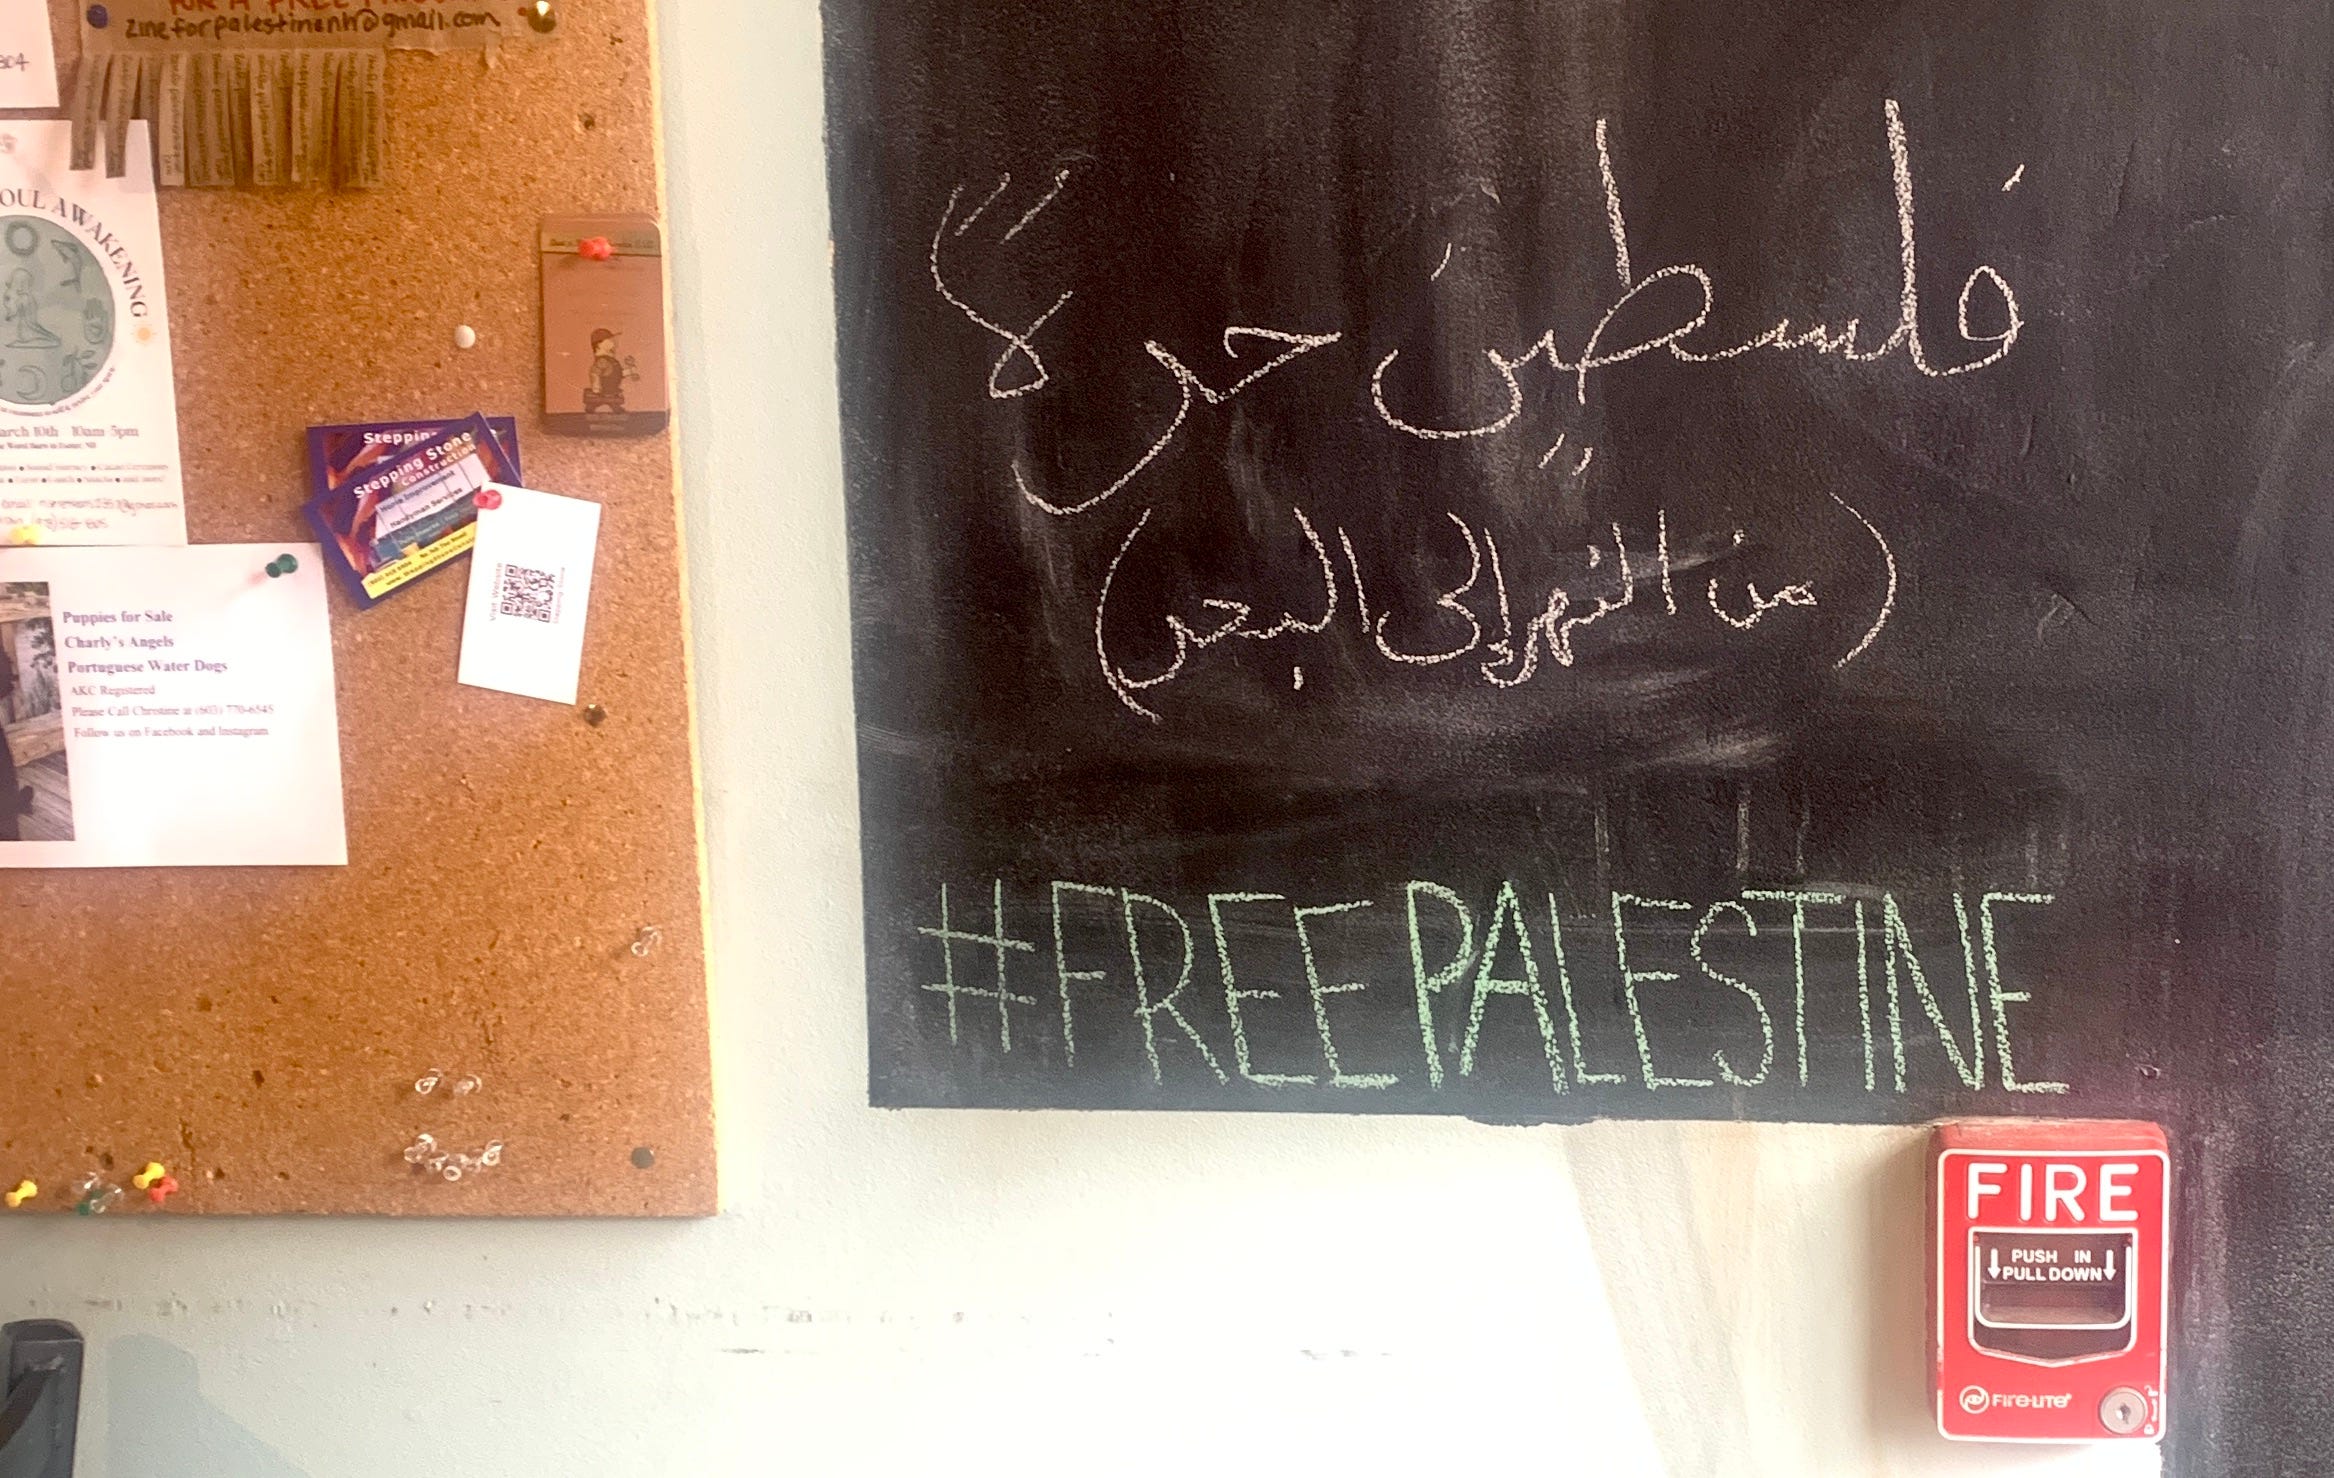 zineforpalestinenh@gmail.com
804
OUL AWAKENING
arch 10th 10am-5pm
Stepping
Stepping Stone
Construction
Home Improvement
Handyman Services
Visit Website
Puppies for Sale
Charly's Angels
Portuguese Water Dogs
AKC Registered
Please Call Christine at (603) 770-6545
Follow us on Facebook and Instagram
فلسطين حرة
(من النهر الى البحر)
#FREEPALESTINE
FIRE
PUSH IN
PULL DOWN
FIRE-LITE